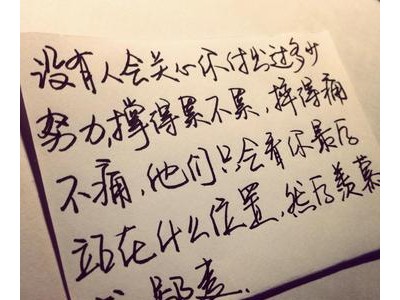 没有人会关心你付出过多少
努力,撑得累不累,摔得痛
不痛,他们只会看你最后
站在什么位置,然后羡慕
或鄙夷.